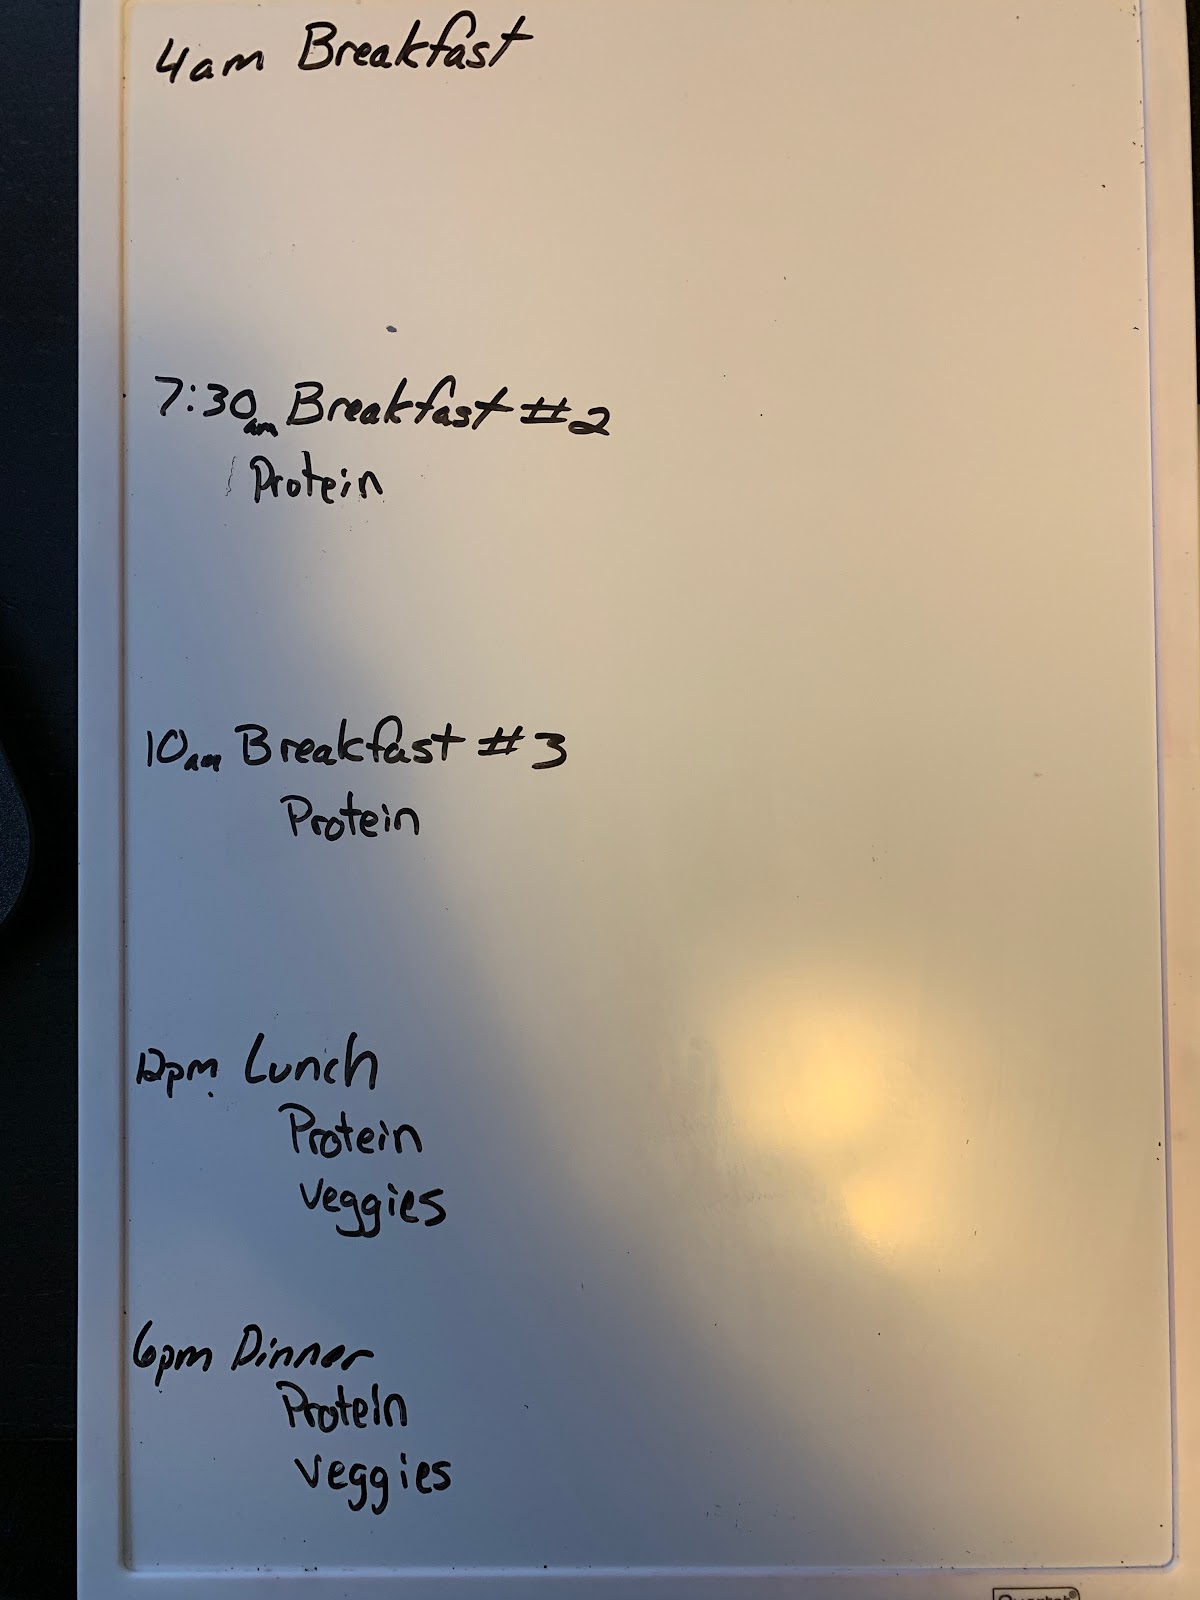 4am Breakfast
7:30am Breakfast #2
Protein
10am Breakfast #3
Protein
12pm Lunch
Protein
veggies
6pm Dinner
Protein
veggies